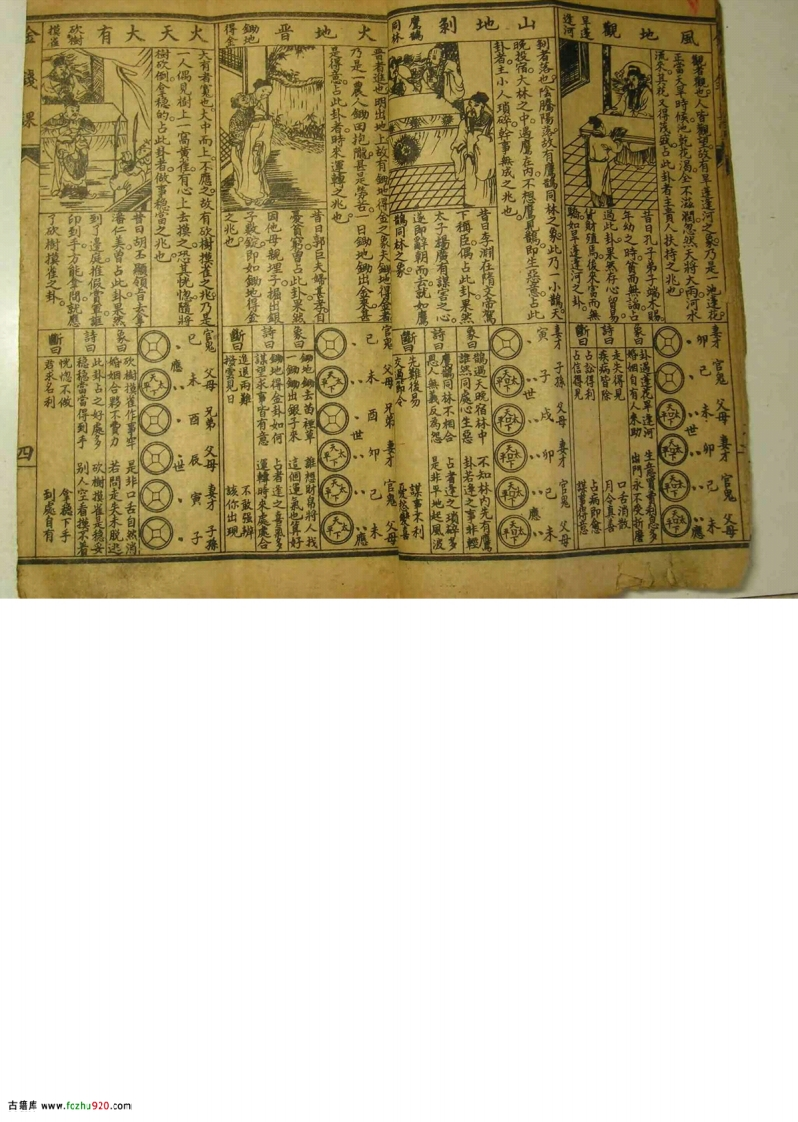 風地觀
旱蓬
逢河
觀者觀也人皆觀望故有旱蓬逢河之象乃是一池蓮花
正當天旱時候池乾花渴全不滋潤忽然天將大雨河水
流來其花又得茂盛占此卦者主貴人扶持之兆也
昔日孔子弟子端木賜
年幼之時貧而無諂占
過此卦果然存心貿易
貨財殖焉後來富而無
驕如旱蓬逢河之卦
妻才 官鬼 父母 妻才 官鬼 父母
卯 己 未 卯 己 未
世 應
象曰
卦遇蓮花旱逢河
生意買賣利息多
婚姻自有人來助
出門永不受折磨
詩曰
走失得見
口舌消散
疾病皆除
月令真喜
斷曰
占訟得利
占病即愈
占信得見
謀事得意
山地剝
鷹鵲
同林
剝者落也陰勝陽薄故有鷹鵲同林之象此乃一小鵲天
晚投宿大林之中過鷹在內不想鷹見鵲即生惡意占此
卦者主小人瑣碎幹事無成之兆也
昔日李淵在隋文帝駕
下稱臣偶占此卦果然
太子楊廣有謀害之心
遂即辭朝而去就如鷹
鵲同林之象
妻才 子孫 父母 妻才 官鬼 父母
寅 子 戌 卯 己 未
世 應
象曰
鵲遇天晚宿林中
不知林內先有鷹
雖然同處心生惡
卦若逢之事非輕
詩曰
鷹鵲同林不相合
占者逢之瑣碎多
恩人無義反為怨
是非平地起風波
斷曰
先難後易
謀事不利
火地晉
鋤地
得金
晉者進也明出地上故有鋤地得金之象夫鋤地得金者
乃是一農人鋤田抱隴甚是勞苦一日鋤地鋤出金來甚
是得意占此卦者時來運轉之兆也
昔日郭巨夫婦甚孝自
憂貧窮曾占此卦果然
因他母親埋子掘出銀
子數錠即如鋤地得金
之兆也
官鬼 父母 兄弟 妻才 官鬼 父母
己 未 酉 卯 己 未
世 應
象曰
鋤地鋤去苗裡草
誰想財帛將人找
一鋤鋤出銀子來
這個運氣也算好
詩曰
鋤地得金卦如何
占者逢之喜氣多
謀望求事皆有意
運轉時來處處合
斷曰
進退兩難
不敢強辨
撥雲見日
該你出現
火天大有
砍樹
摸雀
大有者寬也大中而上不應之故有砍樹摸雀之兆乃是
一人偶見樹上一窩黃雀有心上去摸之恐其恍惚隨將
樹砍倒拿穩的占此卦者做事穩當之兆也
昔日胡丕顯領旨去拿
潘仁美曾占此卦果然
到了邊庭推假雷單誆
印到手方能拿問就應
了砍樹摸雀之卦
官鬼 父母 兄弟 父母 妻才 子孫
己 未 酉 辰 寅 子
應 世
象曰
砍樹摸雀作事牢
是非口舌自然消
婚姻合夥不費力
若問走失未脫逃
詩曰
此卦占之好處多
砍樹摸雀是穩妥
穩穩當當得到手
別人空看摸不着
斷曰
恍惚不做
拿穩下手
君求名利
到處自有
金錢課
四
古籍库 www.fczhu920.com